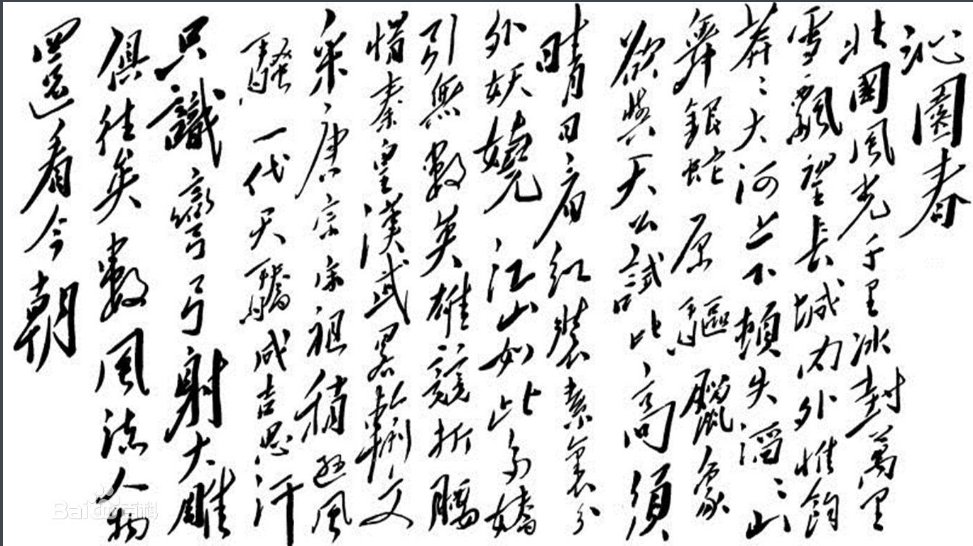 沁園春
北國風光千里冰封萬里
雪飄望長城内外惟餘
莽〻大河上下頓失滔〻山
舞銀蛇原驅臘象
欲與天公試比高須
晴日看紅裝素裹分
外妖嬈江山如此多嬌
引無數英雄競折腰
惜秦皇漢武略輸文
采唐宗宋祖稍遜風
騷一代天驕成吉思汗
只識彎弓射大雕
俱往矣數風流人物
還看今朝
Baidu百科